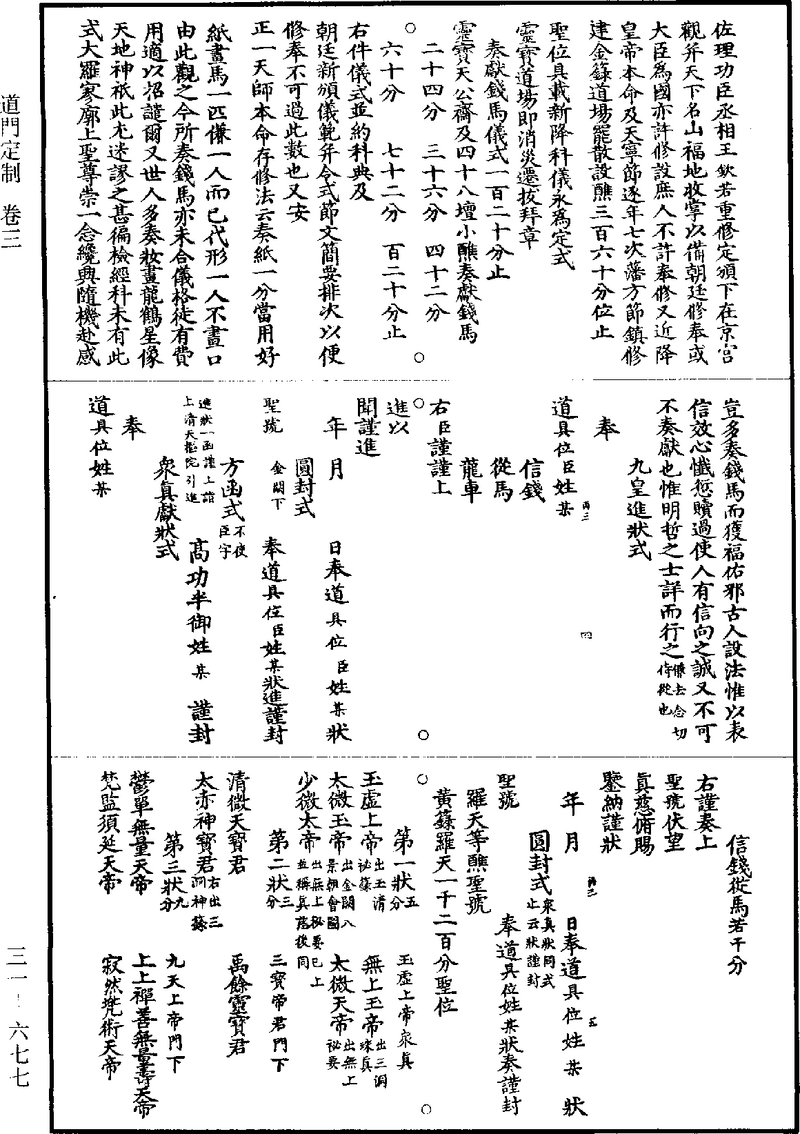 佐理功臣丞相王欽若重修定頒下在京宮
觀并天下名山福地收掌以備朝廷修奉或
大臣為國亦許修設庶人不許奉修又近降
皇帝本命及天寧節逐年七次藩方節鎮修
建金籙道場罷散設醮三百六十分位止
聖位具載新降科儀永為定式
靈寶道場即消災還拔拜章
奏獻錢馬儀式一百二十分止
靈寶天公齋及四十八壇小醮奏獻錢馬
二十四分 三十六分 四十二分
六十分 七十二分 百二十分止
右件儀式並約科典及
朝廷新頒儀範并令式節文簡要排次以便
修奉不可過此數也又安
正一天師本命存修法云奏紙一分當用好
紙畫馬一匹傔一人而已代形一人不畫口
由此觀之今所奏錢馬亦未合儀格徒有費
用適以招譴爾又世人多奏妝畫龍鶴星像
天地神祇此尤迷謬之甚徧檢經科未有此
式大羅寥廓上聖尊崇一念纔興隨機赴感
豈多奏錢馬而獲福佑邪古人設法惟以表
信效心懺愆贖過使人有信向之誠又不可
不奏獻也惟明哲之士詳而行之傔去念切侍從也
九皇進狀式
奉
道具位臣姓某
信錢
從馬
龍車
右臣謹謹上
進以
聞謹進
年 月 日奉道具位臣姓某狀
圓封式
聖號 金闕下 奉道具位臣姓某狀進謹封
方函式不使臣字
進狀一函謹上詣上清天樞院引進 高功半御姓某 謹封
眾真獻狀式
奉
道具位姓某
信錢從馬若干分
右謹奏上
聖號伏望
真慈俯賜
鑒納謹狀
年 月 日奉道具位姓某 狀
圓封式眾真狀同式止云狀謹封
聖號 奉道具位姓某狀奏謹封
羅天等醮聖號
黃籙羅天一千二百分聖位
第一狀五分 玉虛上帝眾真
玉虛上帝出玉清祕籙 無上玉帝出三洞珠真
太微玉帝出金闕八景朝會圖 太微天帝出無上祕要
少微太帝出無上祕要已上並稱真慈後同
第二狀三分 三寶帝君門下
清微天寶君 禹餘靈寶君
太赤神寶君右出三洞神籙
第三狀九分 九天上帝門下
鬱單無量天帝 上上禪善無量壽天帝
梵監須延天帝 寂然兜術天帝
道門定制 卷三
三一—六七七